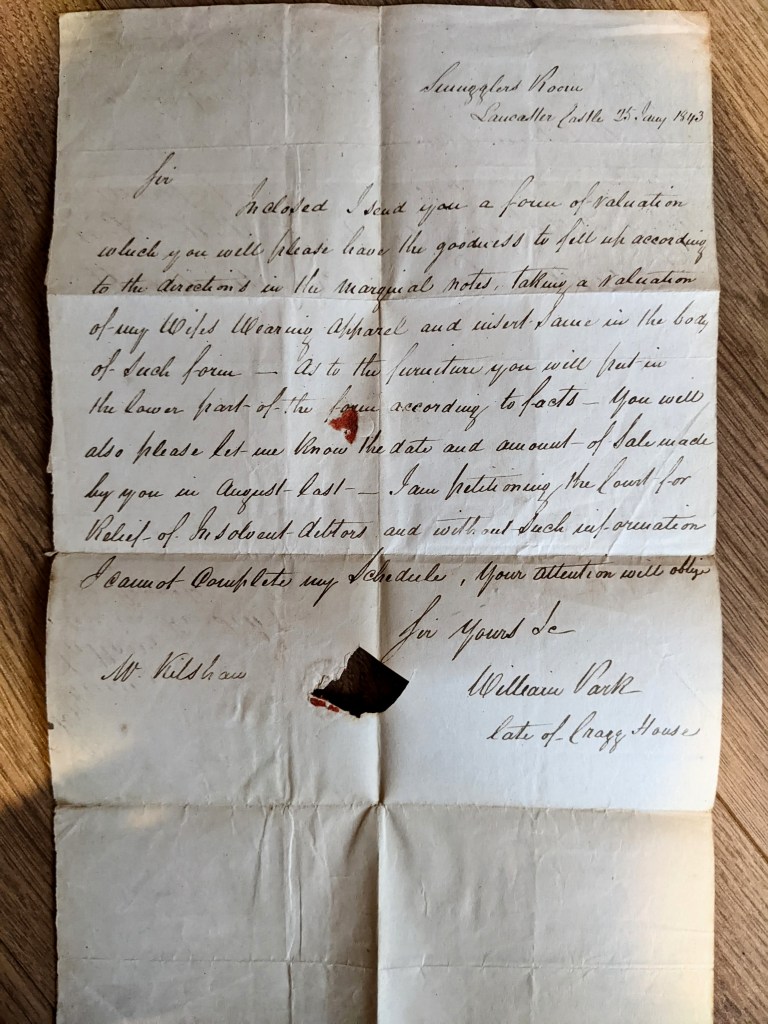 Smugglers Room
Lancaster Castle 25 Jany 1843
Sir
Inclosed I send you a form of valuation
which you will please have the goodness to fill up according
to the directions in the marginal notes, taking a valuation
of my Wifes Wearing Apparel and insert Same in the body
of Such form — As to the furniture you will put in
the lower part of the form according to facts — You will
also please let me know the date and amount of Sale made
by you in August last — I am petitioning the Court for
Relief of Insolvent debtors and without Such information
I cannot Complete my Schedule, Your attention will oblige
Sir Yours &c
Mr. Kilshaw
William Park
late of Cragg House